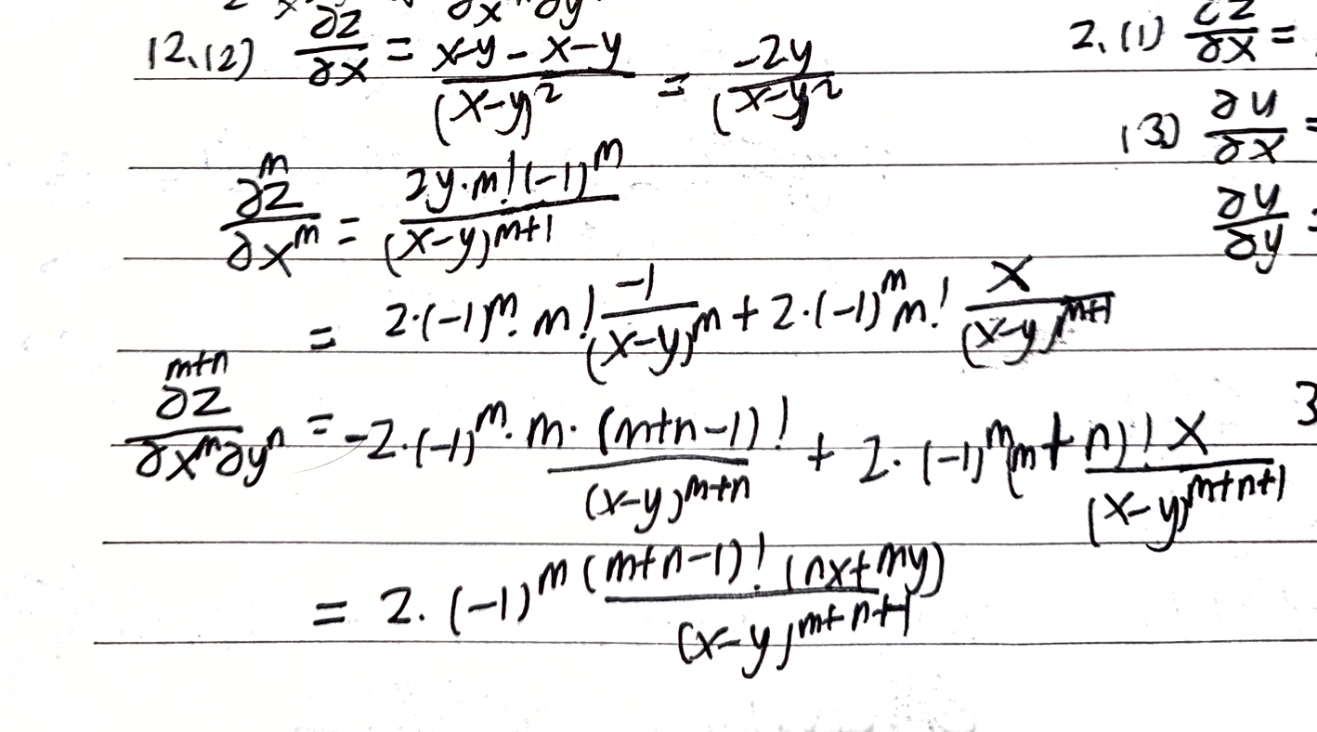 12.(2) ∂z/∂x = (x-y-x-y)/(x-y)^2 = (-2y)/(x-y)^2
2.(1) ∂z/∂x =
(3) ∂u/∂x =
∂^m z/∂x^m = (2y·m!(-1)^m)/(x-y)^(m+1)
∂u/∂y =
= 2·(-1)^m·m! (-1)/(x-y)^m + 2·(-1)^m m! x/(x-y)^(m+1)
∂^(m+n) z/∂x^m∂y^n = -2·(-1)^m·m·(m+n-1)!/(x-y)^(m+n) + 2·(-1)^m (m+n)! x/(x-y)^(m+n+1)
3
= 2·(-1)^m (m+n-1)! (nx+my)/(x-y)^(m+n+1)